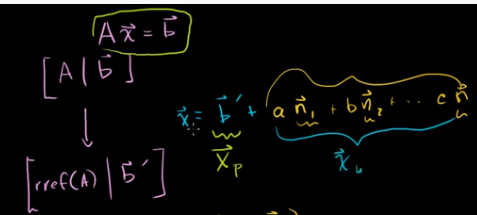 A x⃗ = b⃗
[A | b⃗]
[rref(A) | b⃗′]
x⃗ = b⃗′ + a n⃗₁ + b n⃗₂ + ··· c n⃗
x⃗ₚ
x⃗ₙ